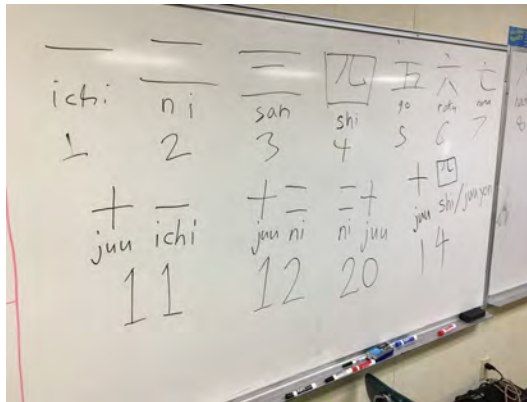 一 二 三 四 五 六 七
ichi ni san shi go roku
1 2 3 4 5 6 7
十一 十二 二十 十四
juu ichi juu ni ni juu juu shi/juu yon
11 12 20 14